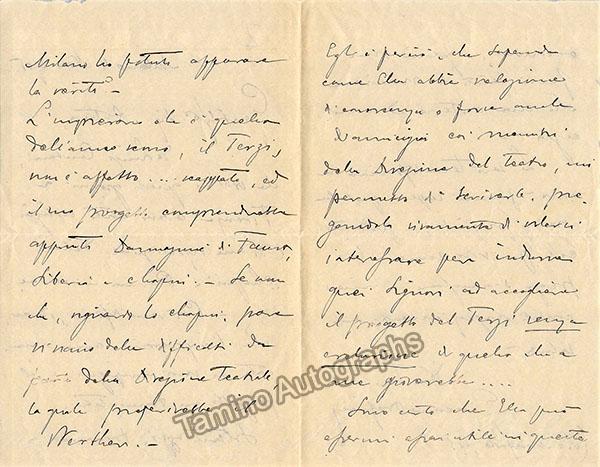 Milano ho potuto appurare
la verità. –
L'impresario che è quello
dell'anno scorso, il Terzi,
non è affatto .... scappato, ed
il suo progetto comprenderebbe
appunto Dannazione di Faust,
Siberia e Chopin. – Se non
che, riguardo lo Chopin, pare
vi siano delle difficoltà da
parte della Direzione Teatrale,
la quale preferirebbe il
Werther. –
Egli è perciò, che sapendo
come Ella abbia relazione
di conoscenza o forse anche
d'amicizia coi membri
della Direzione del Teatro, mi
permetto di scriverle, pre-
gandola vivamente di volersi
interessare per indurre
quei Signori ad accogliere
il progetto del Terzi senza
esclusione di quello che a
me gioverebbe ....
Sono certo che Ella può
essermi assai utile in questa
Tamino Autographs